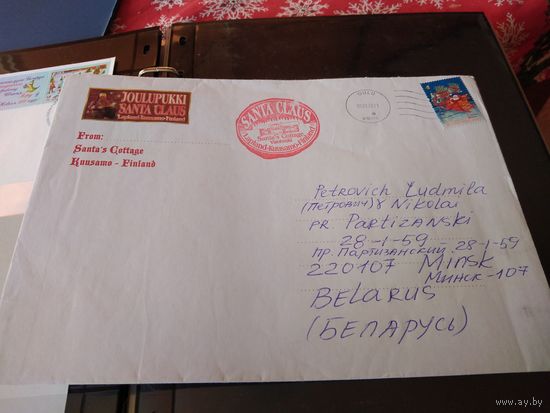 JOULUPUKKI
SANTA CLAUS
Lapland-Kuusamo-Finland
From:
Santa's Cottage
Kuusamo - Finland
SANTA CLAUS
Santa's Cottage
Lapland-Kuusamo-Finland
OULU
Petrovich Ludmila
(Петрович) & Nikolai
PR. PARTIZANSKI
28-1-59
ПР. ПАРТИЗАНСКИЙ 28-1-59
220107 MINSK
МИНСК-107
BELARUS
(БЕЛАРУСЬ)
www.ay.by